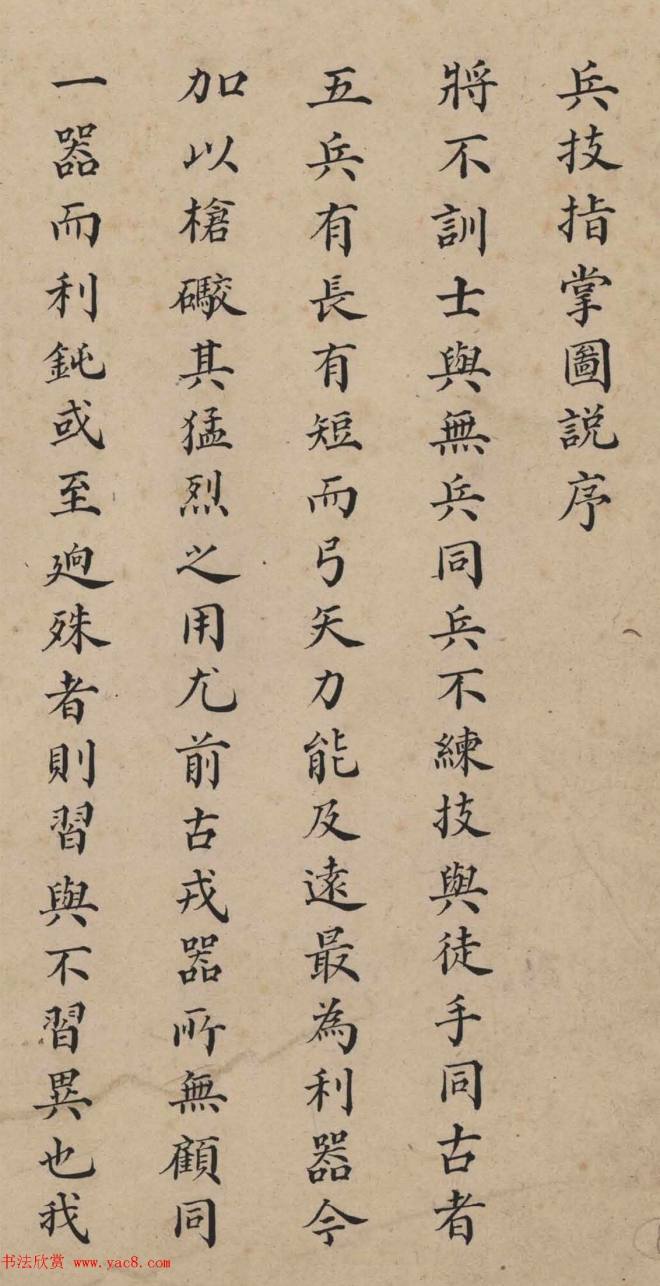 兵技指掌圖說序
將不訓士與無兵同兵不練技與徒手同古者
五兵有長有短而弓矢力能及遠最為利器今
加以槍礮其猛烈之用尤前古戎器所無顧同
一器而利鈍或至迥殊者則習與不習異也我
书法欣赏 www.yac8.com